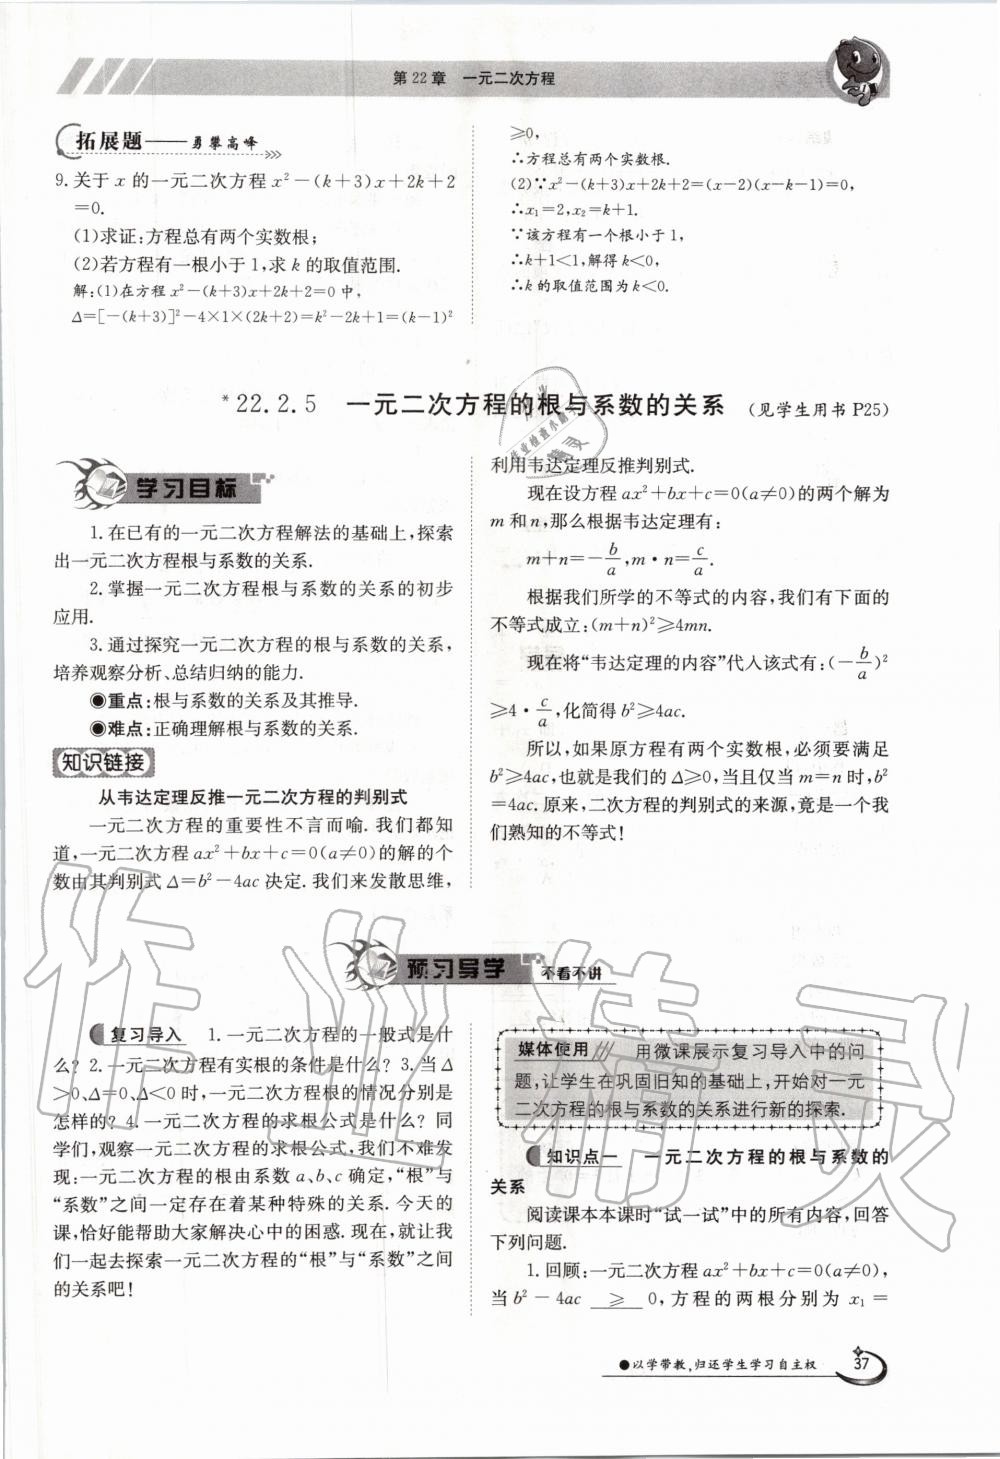 第22章 一元二次方程
拓展题——勇攀高峰
9.关于x的一元二次方程x²-(k+3)x+2k+2
=0.
(1)求证:方程总有两个实数根;
(2)若方程有一根小于1,求k的取值范围.
解:(1)在方程x²-(k+3)x+2k+2=0中,
Δ=[-(k+3)]²-4×1×(2k+2)=k²-2k+1=(k-1)²
≥0,
∴方程总有两个实数根.
(2)∵x²-(k+3)x+2k+2=(x-2)(x-k-1)=0,
∴x₁=2,x₂=k+1.
∵该方程有一个根小于1,
∴k+1<1,解得k<0,
∴k的取值范围为k<0.
*22.2.5 一元二次方程的根与系数的关系 (见学生用书P25)
学习目标
1.在已有的一元二次方程解法的基础上,探索
出一元二次方程根与系数的关系.
2.掌握一元二次方程根与系数的关系的初步
应用.
3.通过探究一元二次方程的根与系数的关系,
培养观察分析、总结归纳的能力.
◉重点:根与系数的关系及其推导.
◉难点:正确理解根与系数的关系.
知识链接
从韦达定理反推一元二次方程的判别式
一元二次方程的重要性不言而喻.我们都知
道,一元二次方程ax²+bx+c=0(a≠0)的解的个
数由其判别式Δ=b²-4ac决定.我们来发散思维,
利用韦达定理反推判别式.
现在设方程ax²+bx+c=0(a≠0)的两个解为
m和n,那么根据韦达定理有:
m+n=-b/a,m·n=c/a.
根据我们所学的不等式的内容,我们有下面的
不等式成立:(m+n)²≥4mn.
现在将“韦达定理的内容”代人该式有:(-b/a)²
≥4·c/a,化简得b²≥4ac.
所以,如果原方程有两个实数根,必须要满足
b²≥4ac,也就是我们的Δ≥0,当且仅当m=n时,b²
=4ac.原来,二次方程的判别式的来源,竟是一个我
们熟知的不等式!
预习导学 不看不讲
复习导入 1.一元二次方程的一般式是什
么?2.一元二次方程有实根的条件是什么?3.当Δ
>0、Δ=0、Δ<0时,一元二次方程根的情况分别是
怎样的?4.一元二次方程的求根公式是什么?同
学们,观察一元二次方程的求根公式,我们不难发
现:一元二次方程的根由系数a、b、c确定,“根”与
“系数”之间一定存在着某种特殊的关系.今天的
课,恰好能帮助大家解决心中的困惑.现在,就让我
们一起去探索一元二次方程的“根”与“系数”之间
的关系吧!
媒体使用 用微课展示复习导入中的问
题,让学生在巩固旧知的基础上,开始对一元
二次方程的根与系数的关系进行新的探索.
知识点一 一元二次方程的根与系数的
关系
阅读课本本课时“试一试”中的所有内容,回答
下列问题.
1.回顾:一元二次方程ax²+bx+c=0(a≠0),
当b²-4ac ≥ 0,方程的两根分别为x₁=
●以学带教,归还学生学习自主权 37
作业精灵